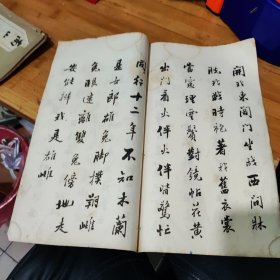 開我東閣門坐我西間牀
脫我戰時袍著我舊衣裳
當窗理雲鬢對鏡帖花黃
出門看火伴火伴皆驚忙
同行十二年不知木蘭
是女郎雄兔脚撲朔雌
兔眼迷離雙兔傍地走
安能辨我是雄雌